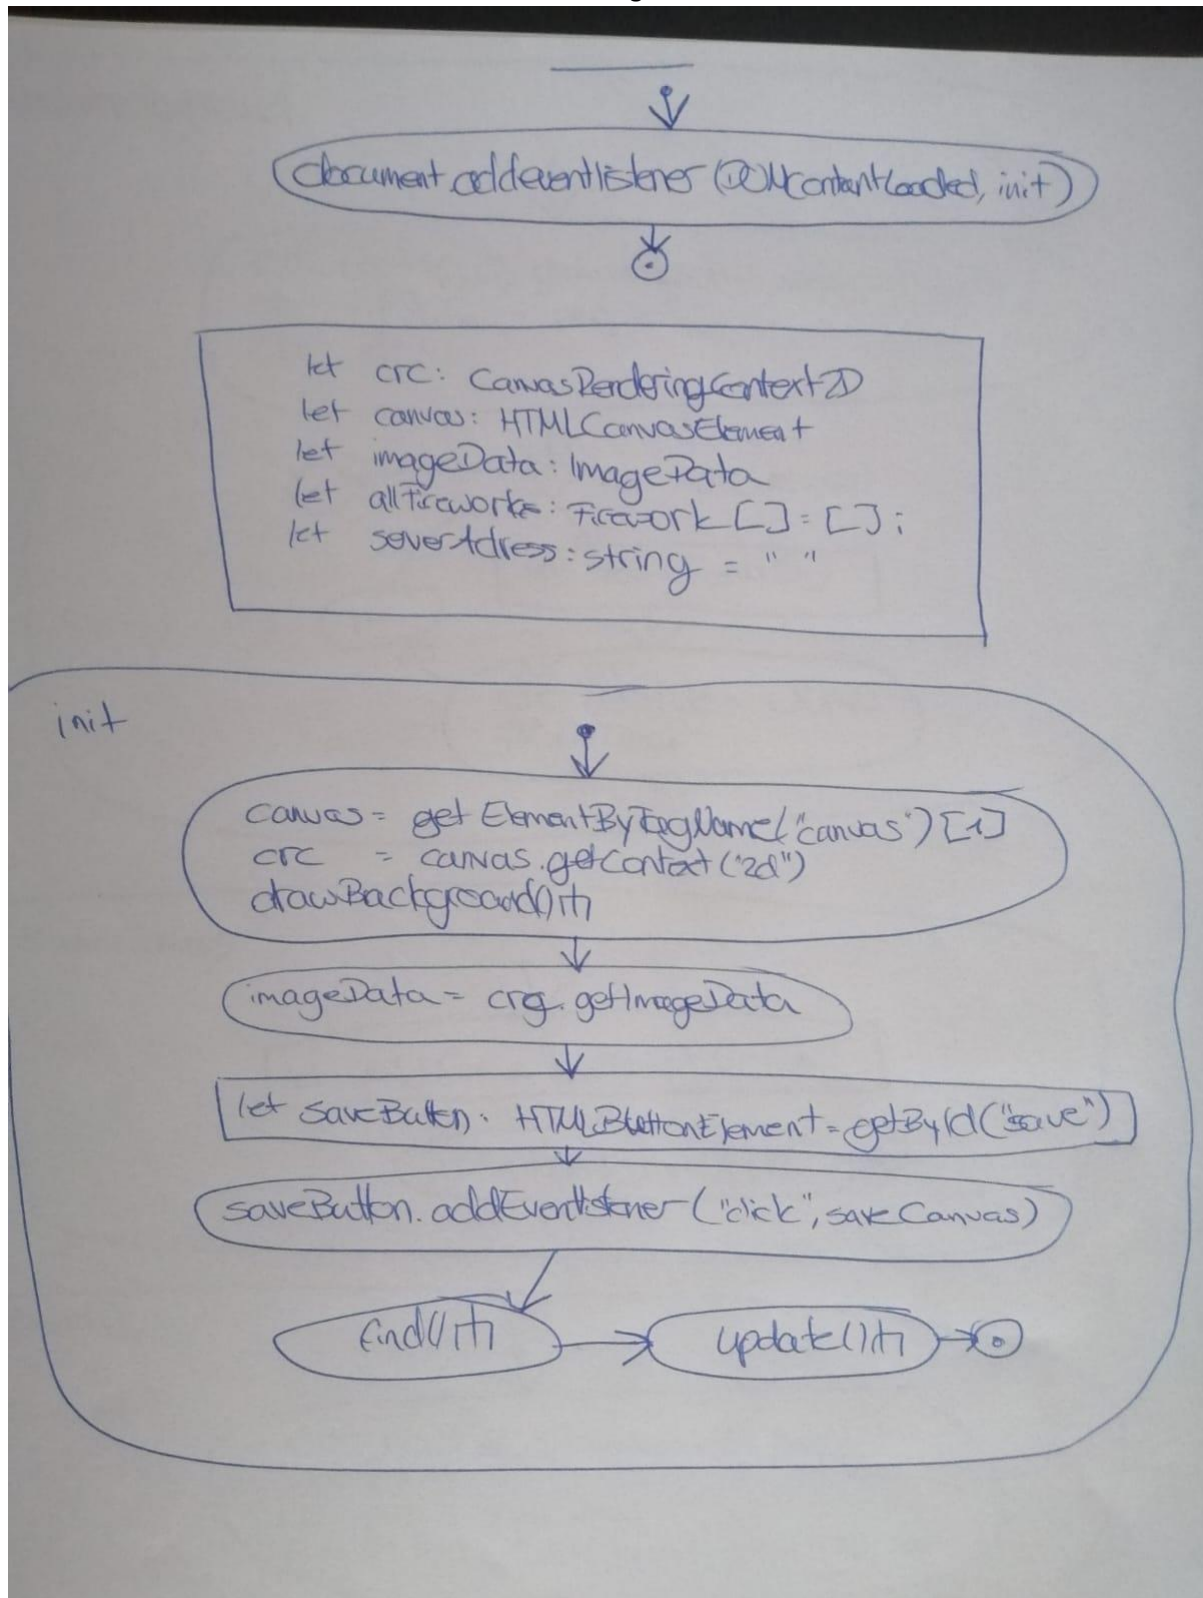 document.addeventlistener(DOMContantLoaded, init)
let crc: CanvasRenderingContext2D
let canvas: HTMLCanvasElement
let imageData: ImageData
let allFireworks: Firework[] = [];
let severAdress: string = " "
init
canvas = getElementByTagName("canvas")[1]
crc = canvas.getContext("2d")
drawBackground()
imageData = crg.getImageData
let saveButton: HTMLButtonElement = getById("save")
saveButton.addEventlistener("click", saveCanvas)
find()
update()